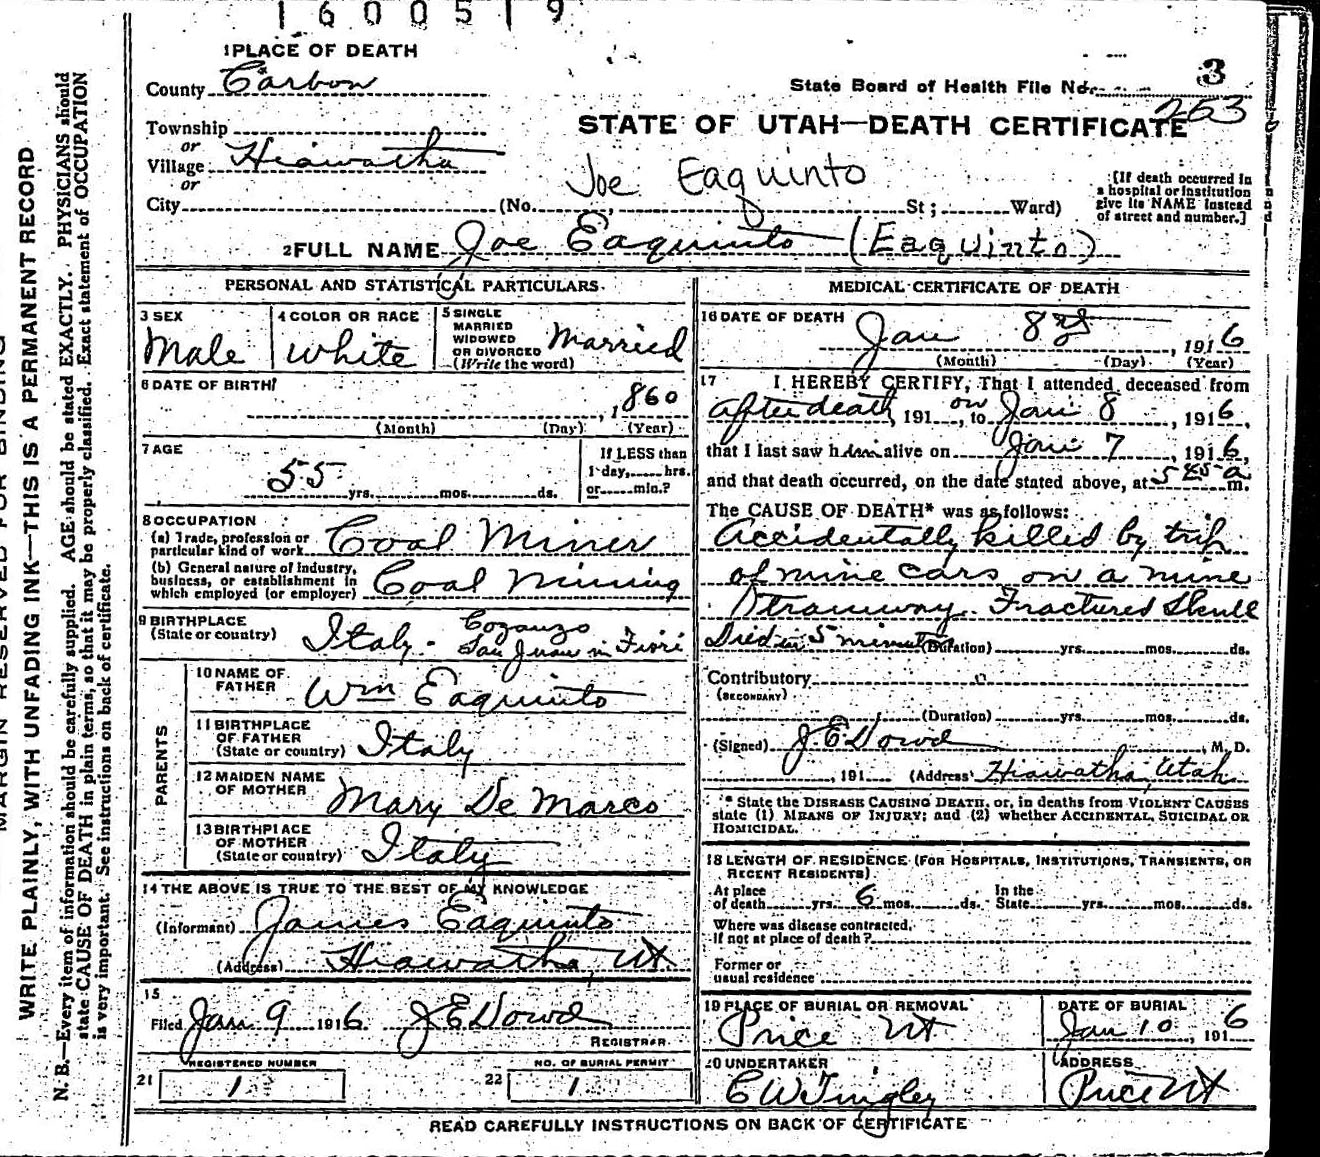 1600519
1 PLACE OF DEATH
County Carbon
State Board of Health File No. 3
263
STATE OF UTAH—DEATH CERTIFICATE
Township
or
Village Hiawatha
or
Joe Eaquinto
City (No. St ; Ward)
[If death occurred in
a hospital or institution
give its NAME instead
of street and number.]
2 FULL NAME Joe Eaquinto (Eaquinto)
PERSONAL AND STATISTICAL PARTICULARS.
3 SEX
Male
4 COLOR OR RACE
White
5 SINGLE
MARRIED
WIDOWED
OR DIVORCED
(Write the word)
Married
6 DATE OF BIRTH
, 1860
(Month) (Day) (Year)
7 AGE
55 yrs. mos. ds.
If LESS than
1 day, hrs.
or min.?
8 OCCUPATION
(a) Trade, profession or
particular kind of work Coal Miner
(b) General nature of industry,
business, or establishment in
which employed (or employer) Coal Mining
9 BIRTHPLACE
(State or country) Italy - Cozanzo
San Juan in Fiori
PARENTS
10 NAME OF
FATHER Wm Eaquinto
11 BIRTHPLACE
OF FATHER
(State or country) Italy
12 MAIDEN NAME
OF MOTHER Mary De Marco
13 BIRTHPLACE
OF MOTHER
(State or country) Italy
14 THE ABOVE IS TRUE TO THE BEST OF MY KNOWLEDGE
(Informant) James Eaquinto
(Address) Hiawatha, Ut.
15
Filed Jan 9 1916 J E Dowd
REGISTRAR
REGISTERED NUMBER
21 1
NO. OF BURIAL PERMIT
22 1
MEDICAL CERTIFICATE OF DEATH
16 DATE OF DEATH
Jan 8 , 1916
(Month) (Day) (Year)
17 I HEREBY CERTIFY, That I attended deceased from
After death, 191 , on to Jan 8 , 1916,
that I last saw him alive on Jan 7 , 1916,
and that death occurred, on the date stated above, at 5 45 a m.
The CAUSE OF DEATH* was as follows:
Accidentally killed by trip
of mine cars on a mine
tramway. Fractured Skull
Died in 5 minutes (Duration) yrs. mos. ds.
Contributory
(SECONDARY)
(Duration) yrs. mos. ds.
(Signed) J E Dowd , M. D.
, 191 (Address) Hiawatha, Utah
* State the DISEASE CAUSING DEATH, or, in deaths from VIOLENT CAUSES
state (1) MEANS OF INJURY; and (2) whether ACCIDENTAL, SUICIDAL OR
HOMICIDAL.
18 LENGTH OF RESIDENCE (FOR HOSPITALS, INSTITUTIONS, TRANSIENTS, OR
RECENT RESIDENTS)
At place
of death yrs. 6 mos. ds.
In the
State yrs. mos. ds.
Where was disease contracted,
if not at place of death?
Former or
usual residence
19 PLACE OF BURIAL OR REMOVAL
Price Ut
DATE OF BURIAL
Jan 10 , 1916
20 UNDERTAKER
C W Tingley
ADDRESS
Price Ut
READ CAREFULLY INSTRUCTIONS ON BACK OF CERTIFICATE
MARGIN RESERVED FOR BINDING
WRITE PLAINLY, WITH UNFADING INK—THIS IS A PERMANENT RECORD
N. B.—Every item of information should be carefully supplied. AGE should be stated EXACTLY. PHYSICIANS should
state CAUSE OF DEATH in plain terms, so that it may be properly classified. Exact statement of OCCUPATION
is very important. See instructions on back of certificate.